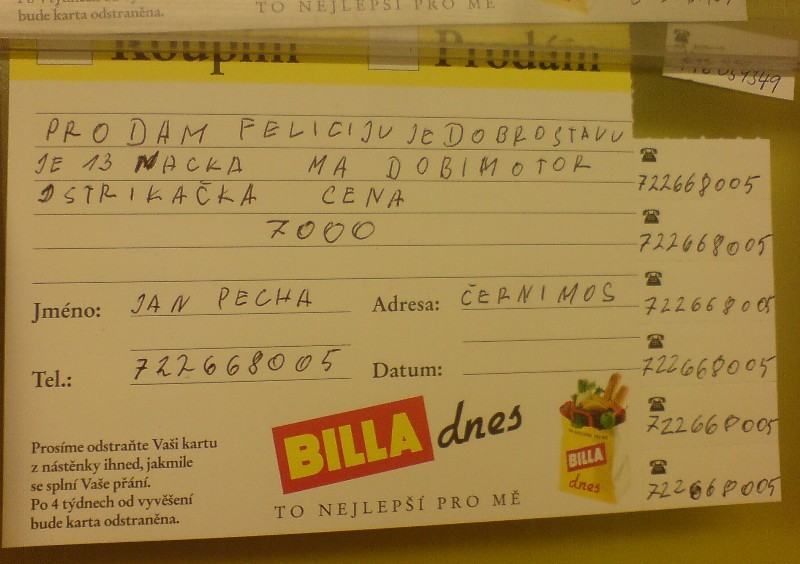 bude karta odstraněna.
TO NEJLEPŠÍ PRO MĚ
Koupím
Prodám
PRODAM FELICIJU JE DOBROSTAVU
JE 13 MACKA MA DOBIMOTOR
DSTRIKAČKA CENA
7000
Jméno: JAN PECHA
Adresa: ČERNIMOS
Tel.: 722668005
Datum:
722668005
722668005
722668005
722668005
722668005
722668005
Prosíme odstraňte Vaši kartu
z nástěnky ihned, jakmile
se splní Vaše přání.
Po 4 týdnech od vyvěšení
bude karta odstraněna.
BILLA dnes
TO NEJLEPŠÍ PRO MĚ
BILLA
dnes